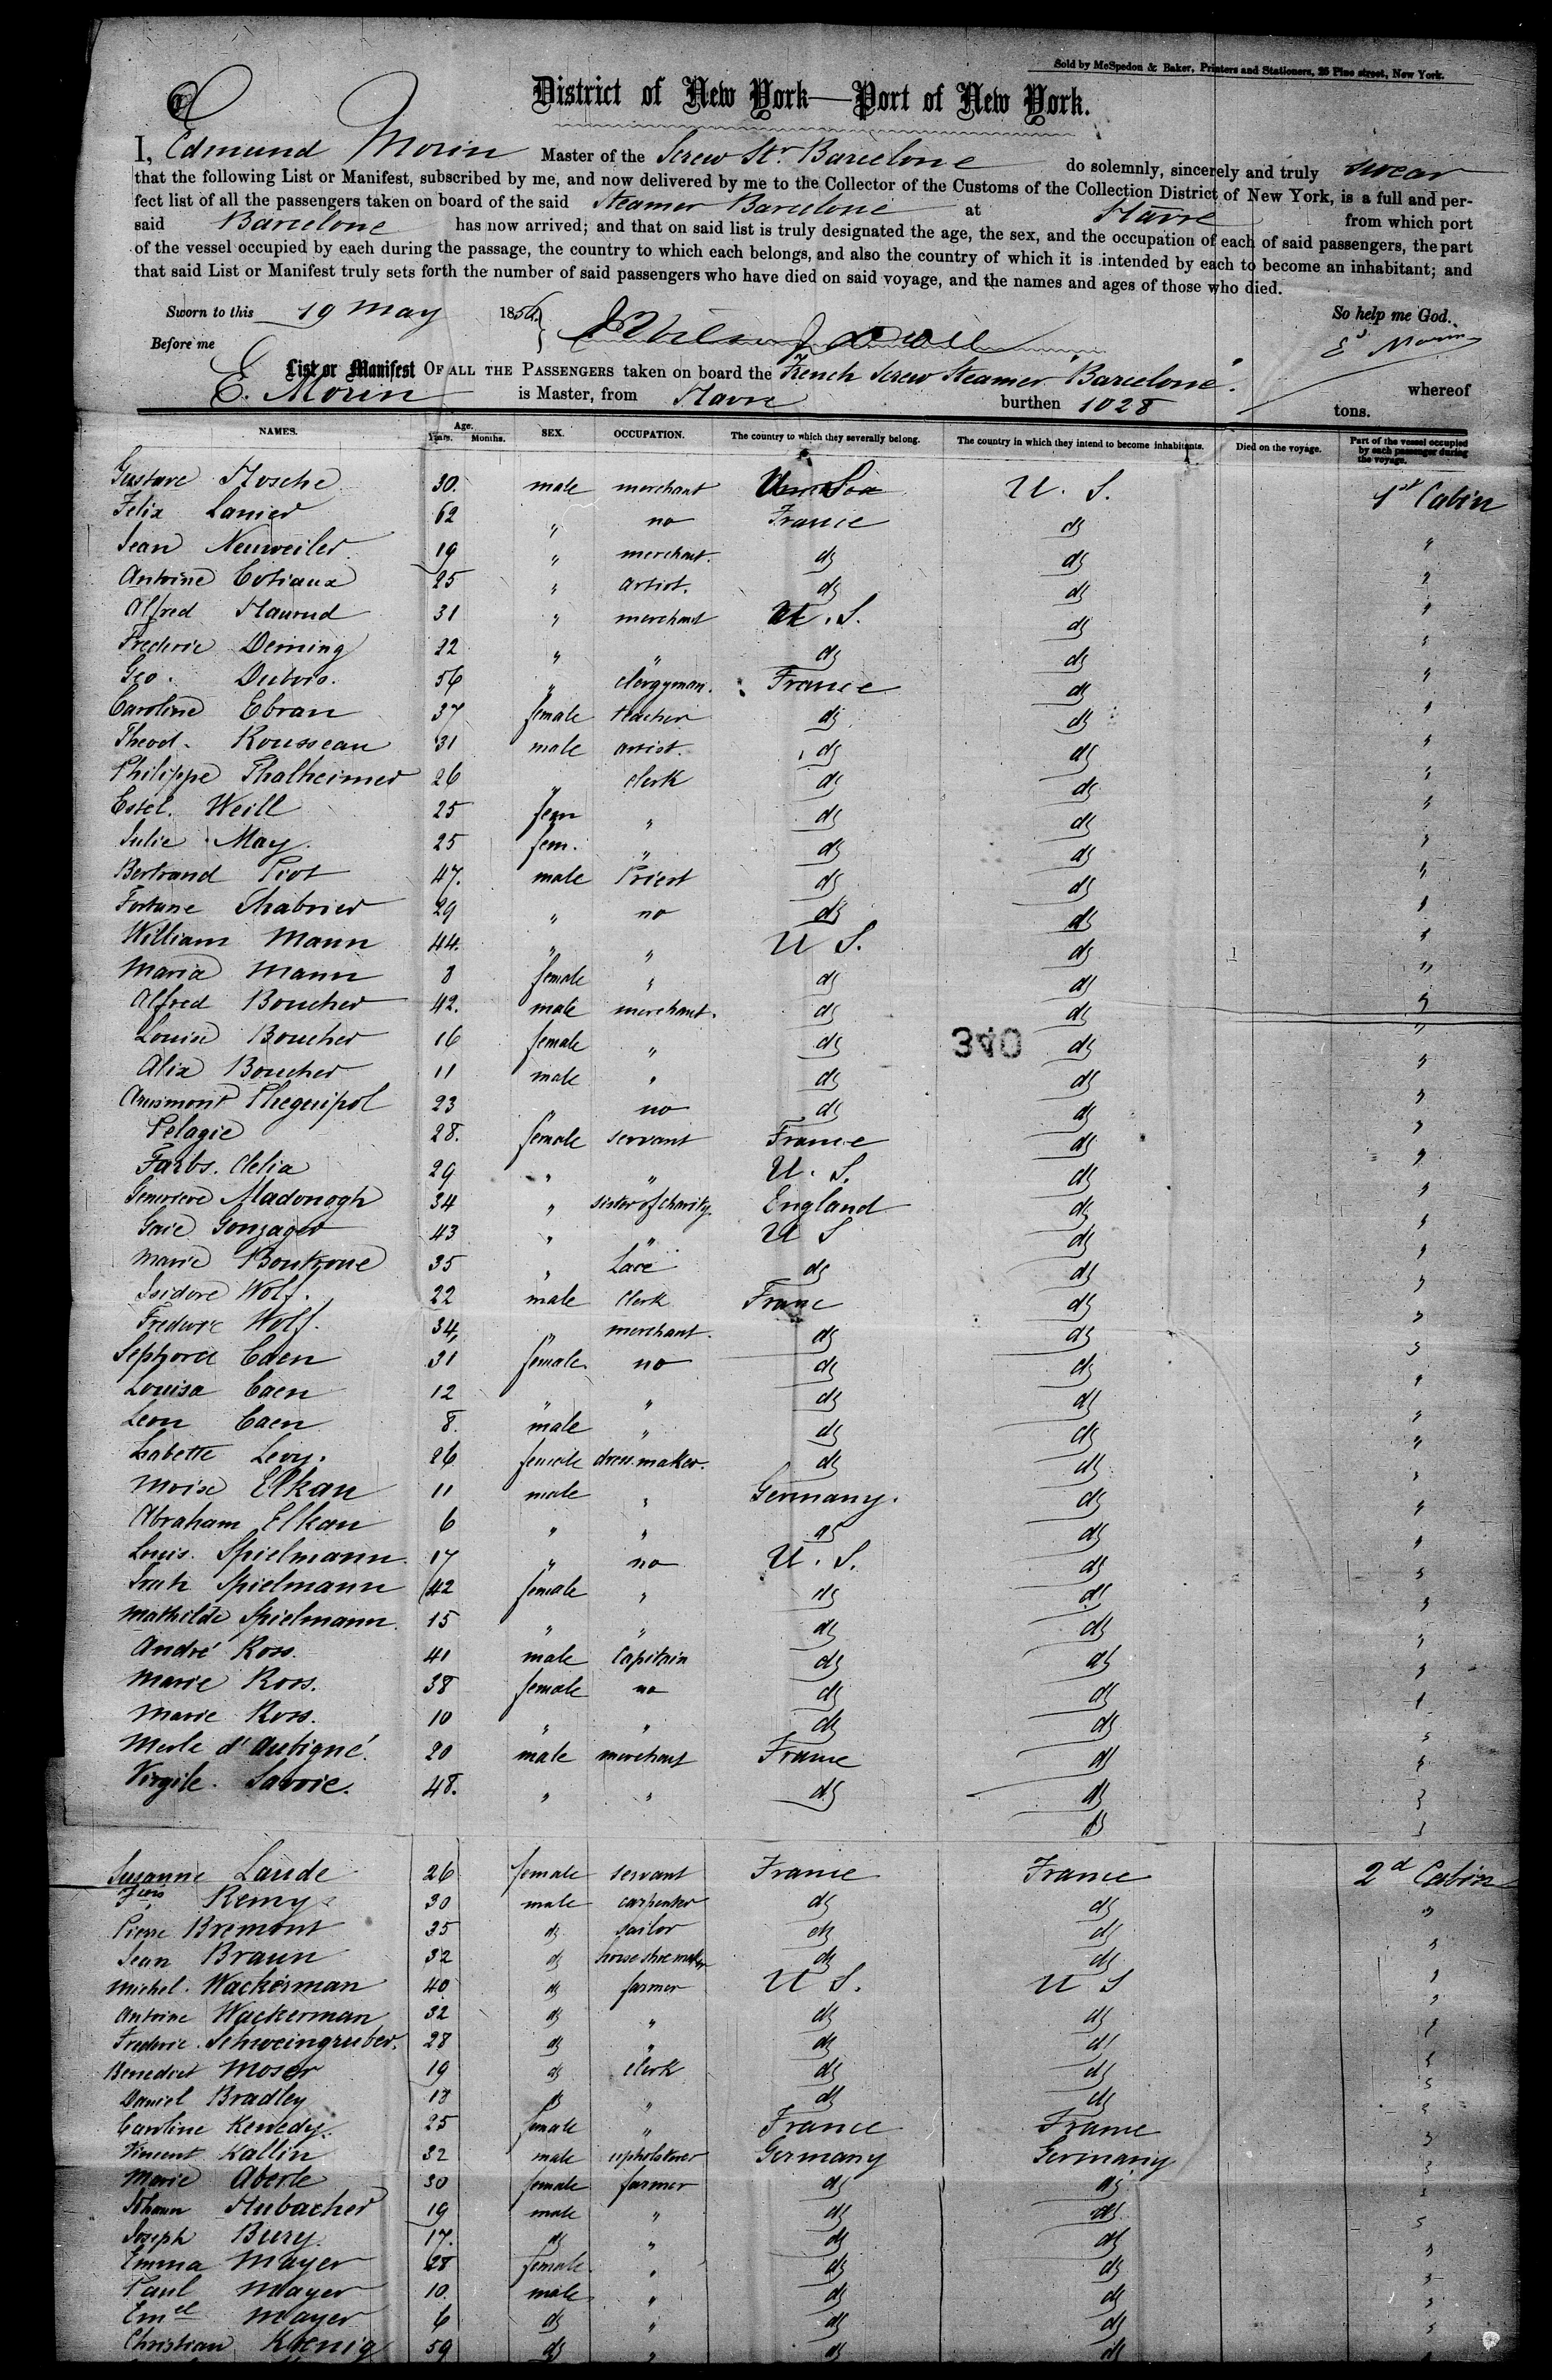 Sold by McSpedon & Baker, Printers and Stationers, 25 Pine street, New York.
District of New York—Port of New York.
I, Edmund Morin Master of the Screw Str. Barcelone do solemnly, sincerely and truly swear
that the following List or Manifest, subscribed by me, and now delivered by me to the Collector of the Customs of the Collection District of New York, is a full and per-
fect list of all the passengers taken on board of the said Steamer Barcelone at Havre from which port
said Barcelone has now arrived; and that on said list is truly designated the age, the sex, and the occupation of each of said passengers, the part
of the vessel occupied by each during the passage, the country to which each belongs, and also the country of which it is intended by each to become an inhabitant; and
that said List or Manifest truly sets forth the number of said passengers who have died on said voyage, and the names and ages of those who died.
Sworn to this 19 May 1856 So help me God.
Before me Ed. Morin
List or Manifest OF ALL THE PASSENGERS taken on board the French Screw Steamer "Barcelone". whereof
E. Morin is Master, from Havre burthen 1028 tons.
NAMES. Age. Years. Months. SEX. OCCUPATION. The country to which they severally belong. The country in which they intend to become inhabitants. Died on the voyage. Part of the vessel occupied by each passenger during the voyage.
Gustave Hosche 30. male merchant U. S. 1st Cabin
Felix Lanier 62 " no France do "
Jean Neuweiler 19 " merchant. do do "
Antoine Cotiaux 25 " artist. do do "
Alfred 31 " merchant U. S. do "
Frederic Deming 32 " " do do "
Geo. Dubois. 56 " clergyman. France do "
Caroline Ebran 37 female teacher do do "
Theod. Rousseau 31 male artist. do do "
Philippe Thalheimer 26 " clerk do do "
Estel. Weill 25 fem " do do "
Julie May. 25 fem. " do do "
Bertrand Piot 47. male Priest do do "
Fortune Chabrier 29 " no do do "
William Mann 44. " " U S. do "
Maria Mann 8 female " do do "
Alfred Boucher 42. male merchant. do do "
Louise Boucher 16 female " do do "
340
Alix Boucher 11 male " do do "
23 " no do do "
Pelagie 28. female servant France do "
Farbs. Clelia 29 " " U. S. do "
Genevieve Madonogh 34 " sister of charity. England do "
Gonzager 43 " " U S do "
Marie 35 " Lace do do "
Isidore Wolf. 22 male clerk Franc do "
Frederic Wolf. 34, " merchant. do do "
Sephora Caen 31 female. no do do "
Louisa Caen 12 " " do do "
Leon Caen 8. male " do do "
Babette Levy. 26 female dress maker. do do "
Moise Elkan 11 male " Germany. do "
Abraham Elkan 6 " " do do "
Louis. Spielmann. 17 " no U. S. do "
Spielmann 42 female " do do "
Mathilde Spielmann. 15 " " do do "
André Ross. 41 male Capitain do do "
Marie Ross. 38 female no do do "
Marie Ross. 10 " " do do "
Merle d'Aubigné. 20 male merchant France do "
Virgile. Savoie. 48. " " do do "
do "
Suzanne Laude 26 female servant France France 2d Cabin
Remy 30 male carpenter do do "
Pierre Bremont 35 do sailor do do "
Jean Braun 32 do horse shoe maker do do "
Michel. Wackerman 40 do farmer U S. U S "
Antoine Wackerman 32 do " do do "
Frederic. Schweingruber. 28 do " do do "
Benedict Moser 19 do clerk do do "
Daniel Bradley 18 do " do do "
Caroline Kenedy. 25 female " France France "
Vincent Kallin 32 male upholsterer Germany Germany "
Marie Aberle 30 female farmer do do "
Johann Hubacher 19 male " do do "
Joseph Bury. 17. do " do do "
Emma Mayer 28 female " do do "
Paul Mayer 10. male " do do "
Emel Mayer 6 do " do do "
Christian Koenig 59 do " do do "